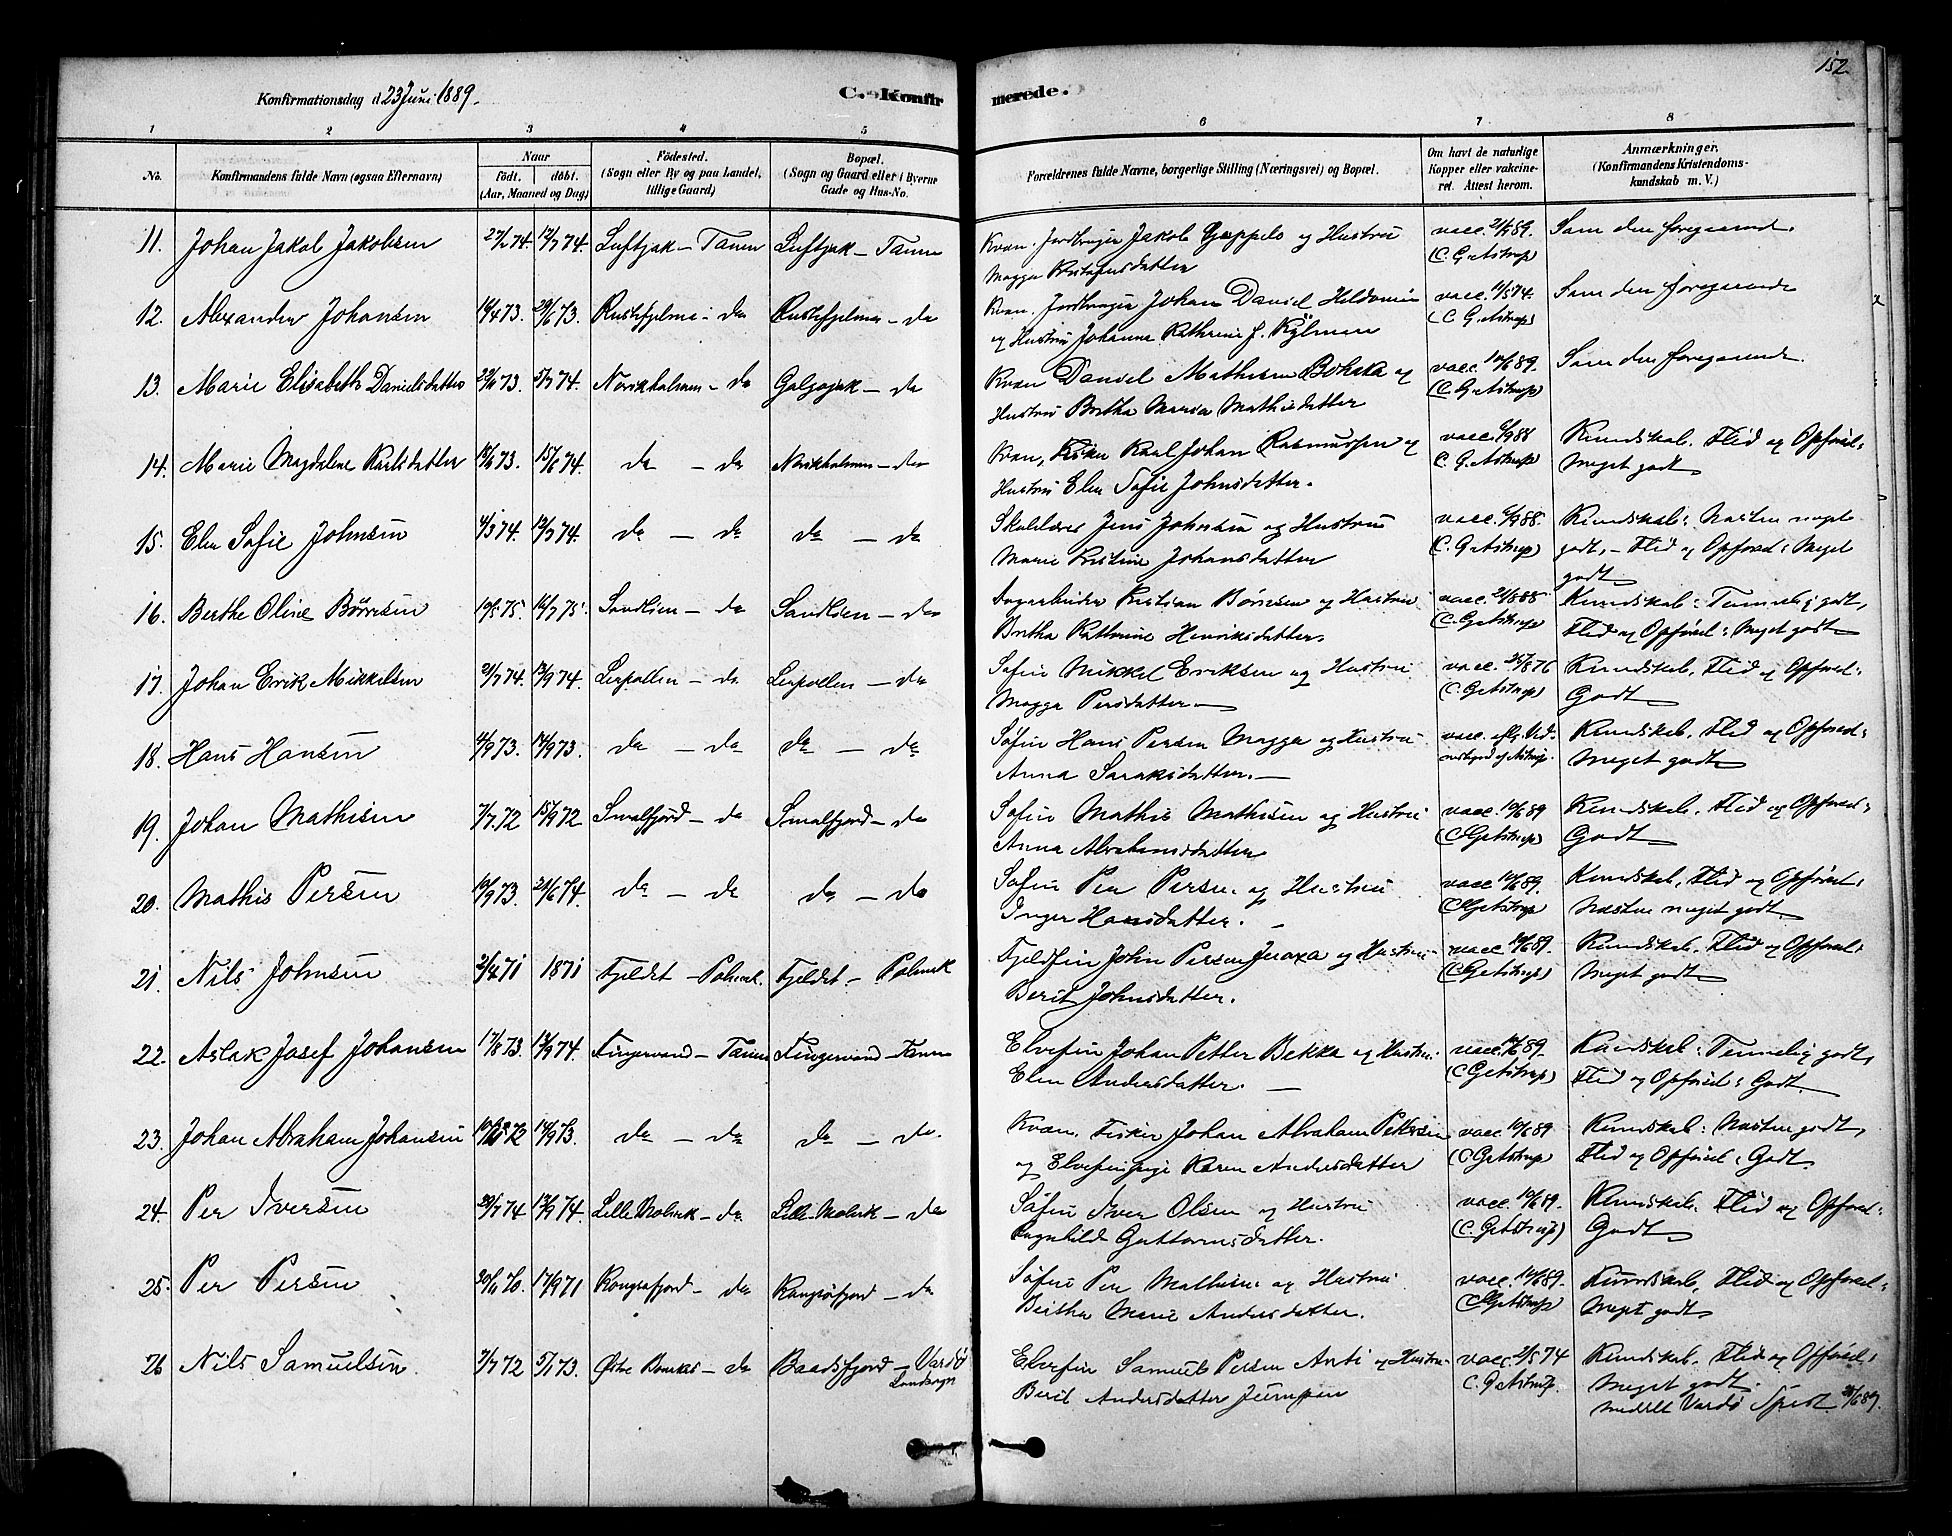 152.
Konfirmationsdag d. 23 Juni 1889.
C. Konfirmerede.
1 2 3 4 5 6 7 8
No.
Konfirmandens fulde Navn (ogsaa Efternavn)
Naar
født. døbt.
(Aar, Maaned og Dag)
Fødested.
(Sogn eller By og paa Landet,
tillige Gaard)
Bopæl.
(Sogn og Gaard eller i Byerne
Gade og Hus-No.
Forældrenes fulde Navne, borgerlige Stilling (Næringsvei) og Bopæl.
Om havt de naturlige
Kopper eller vakcine-
ret. Attest herom.
Anmærkninger.
(Konfirmandens Kristendoms-
kundskab m. V.)
11. Johan Jakob Jakobsen 27/2 74. 12/7 74. Luftjok – Tanen Luftjok – Tanen Kvæn. Jordbruger Jakob Geppelo og Hustru vacc. 21/6 89. Som den foregaaende.
Magga Kristofersdatter (C. G. Astrup)
12. Alexander Johansen 14/4 73. 29/6 73. Rustefjelma – do Rustefjelma – do Kvæn. Jordbruger Johan Daniel og vacc. 11/5 74. Som den foregaaende
og Hustru Johanna Kathrine J. Kylmæn (C. G. Astrup)
13. Marie Elisabeth Danielsdatter 5/7 74. Norskholmen – do Galgojok – do Kvæn Daniel Mathisen og vacc. 10/6 89. Som den foregaaende.
Hustru Bretha Maria Mathisdatter (C. G. Astrup)
14. Marie Magdalene Karlsdatter 15/6 74. do – do Norskholmen – do Kvæn, Fisker Karl Johan Rasmussen og vacc. 6/9 88 Kundskab, Flid og Opførsel:
Hustru Elen Sofie Johnsdatter. C. G. Astrup Meget godt
15. Elen Sofie Johnsen 4/3 74. 12/7 74. do – do do – do Skolelærer Jens Johnsen og Hustru vacc. 6/9 88. Kundskab: Næsten meget
Marie Kristine Johansdatter (C. G. Astrup) godt, – Flid og Opførsel: Meget
godt
16. Berthe Oline Børresen 10/5 75 Sandlien – do Sandlien – do Kristian Børresen og Hustru vacc. 21/8 88 Kundskab: Temmelig godt,
Bretha Kathrine Henriksdatter. (C. G. Astrup) Flid og Opførsel: Meget godt
17. Johan Erik Mikkelsen 21/7 74. 13/9 74. Leirpollen – do Leirpollen – do Søfin Mikkel Eriksen og Hustru vacc. 25/8 76 Kundskab, Flid og Opførsel:
Magga Persdatter. – (C. G. Astrup) Godt
18. Hans Hansen 4/9 73. 14/9 73. do – do do – do Søfin Hans Persen Magga og Hustru vacc. Kundskab, Flid og Opførsel:
Anna Saraksdatter. – Astrup. Meget godt
19. Johan Mathisen 7/7 72 15/9 72 Smalfjord – do Smalfjord – do Søfin Mathis Mathisen og Hustru vacc. 10/6 89 Kundskab, Flid og Opførsel:
Anna Abrahamsdatter (C. G. Astrup) Godt
20. Mathis Persen 10/9 73. 21/6 74. do – do do – do Søfin Per Persen og Hustru vacc. 10/6 89. Kundskab, Flid og Opførsel:
Inger Hansdatter. – (C. G. Astrup) Næsten meget godt.
21. Nils Johnsen 2/4 71 1871 Fjeldet – Polmak. Fjeldet – Polmak Fjeldfin John Persen og Hustru vacc. 10/6 89. Kundskab, Flid og Opførsel:
Berit Johnsdatter. (C. G. Astrup) Meget godt
22. Aslak Josef Johansen 17/8 73. 13/9 74. Fingervand – Tanen Fingervand – Tanen Elvefin Johan Petter Bekka og Hustru. vacc. 10/6 89. Kundskab: Temmelig godt,
Elen Andersdatter. – (C. G. Astrup) Flid og Opførsel: Godt.
23. Johan Abraham Johansen 14/9 73. do – do do – do. Kvæn. Fisker Johan Abraham Pettersen vacc. 10/6 89 Kundskab: Næsten godt,
og Elvefinpige Karen Andersdatter (C. G. Astrup) Flid og Opførsel: Godt.
24. Per Iversen 13/9 74. Lille Molvik – do Lille Molvik – do Søfin Iver Olsen og Hustru vacc. 10/6 89. Kundskab, Flid og Opførsel:
Ragnhilda Guttormsdatter. (C. G. Astrup) Godt
25. Per Persen 20/11 70. 17/9 71 Kongsøfjord – do Kongsøfjord – do Søfin Per Mathisen og Hustru vacc. 10/6 89. Kundskab, Flid og Opførsel:
Beitha Marie Andersdatter. (C. G. Astrup) Meget godt
26 Nils Samuelsen. 7/7 72 5/1 73. Østre – do Baadsfjord – Vardø Elvefin Samuel Persen Anti og Hustru vacc. 2/5 74 Kundskab, Flid og Opførsel:
Landsogn Berit Andersdatter C. G. Astrup. Meget godt.
meddelt Vardø Spræst /6 89.